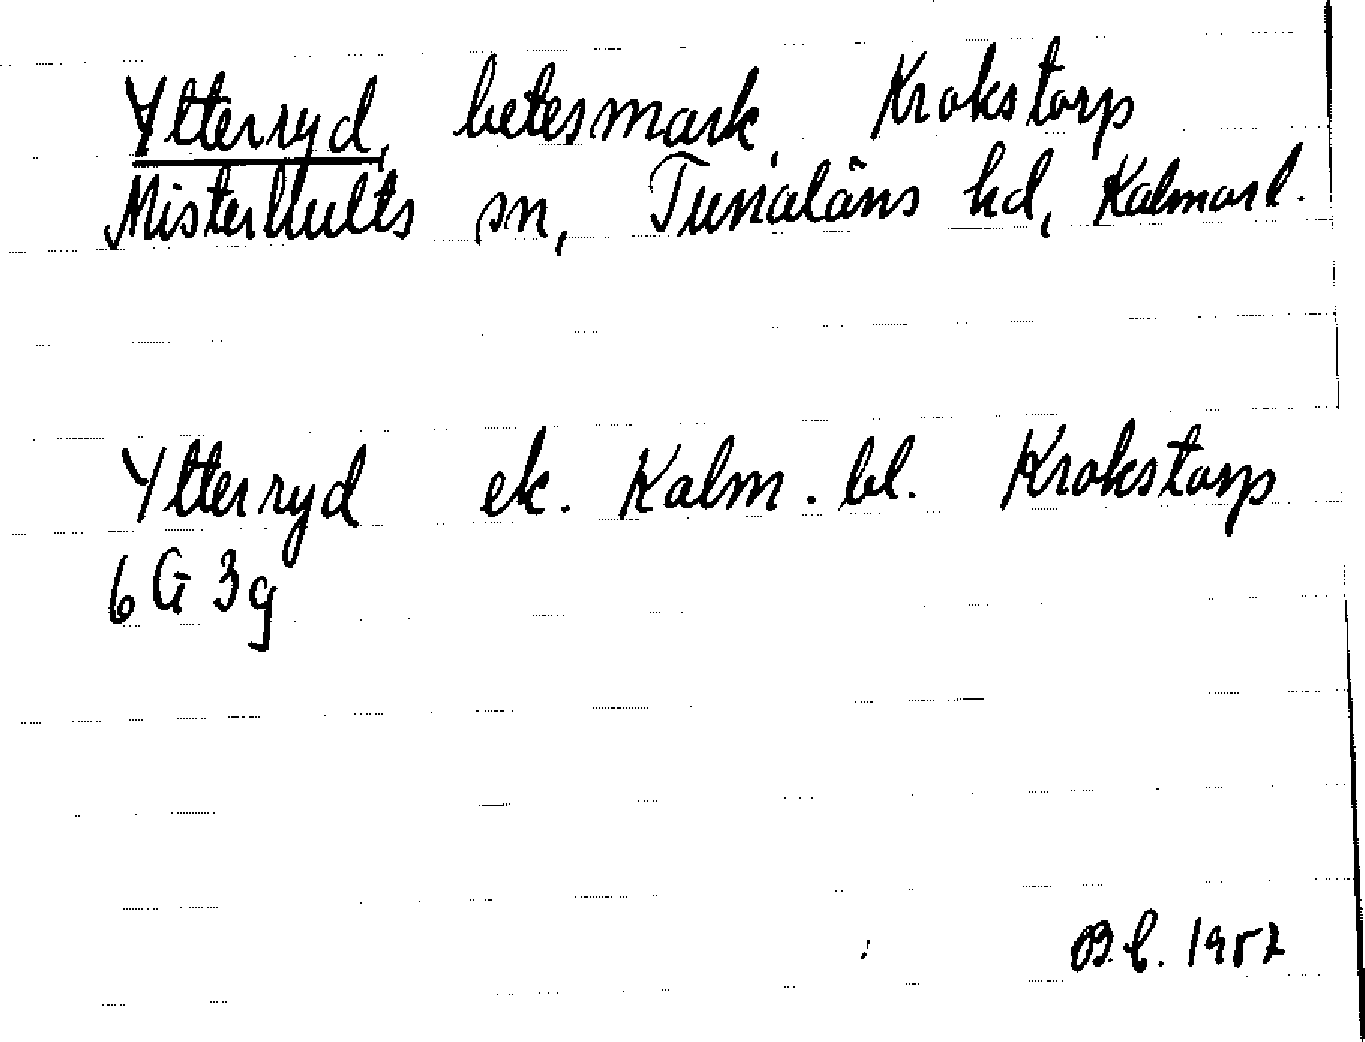 Ytterryd, betesmark, Krokstorp
Misterhults sn, Tunaläns hd, Kalmar l.
Ytterryd ek. Kalm. bl. Krokstorp
6 G 3g
B.C. 1952